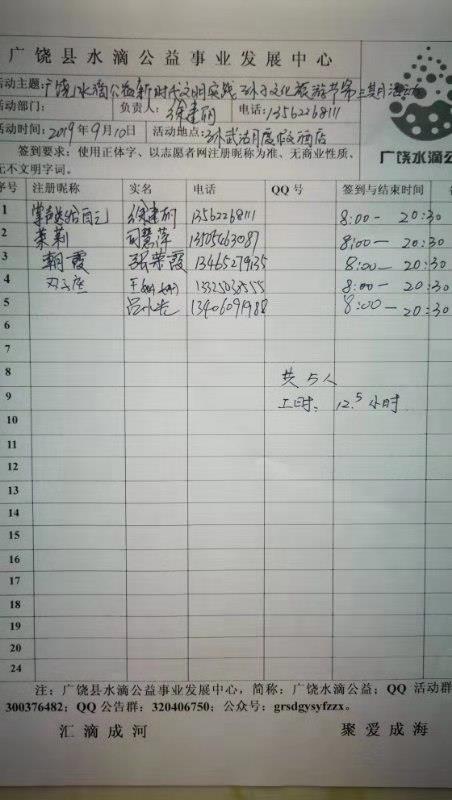 广饶县水滴公益事业发展中心
活动主题: 广饶水滴公益新时代文明实践 孙子文化旅游节第三其月
活动部门: 负责人: 徐建丽 电话: 13562268111
活动时间: 2019年9月10日 活动地点: 孙武湖度假酒店
广饶水滴公
签到要求: 使用正体字、以志愿者网注册昵称为准、无商业性质、
无不文明字词。
序号 注册昵称 实名 电话 QQ号 签到与结束时间
1 掌声送给自己 徐建丽 13562268111 8:00— 20:30
2 茉莉 司慧萍 13505463087 8:00— 20:30
3 朝霞 张荣霞 13465279135 8:00— 20:30
4 8:00— 20:30
5 13406091988 8:00— 20:30
6
7
8 共5人
9 工时: 12.5小时
10
11
12
13
14
15
16
17
18
19
20
21
22
23
24
注: 广饶县水滴公益事业发展中心, 简称: 广饶水滴公益; QQ 活动群
300376482; QQ 公告群: 320406750; 公众号: grsdgysyfzzx。
汇滴成河 聚爱成海